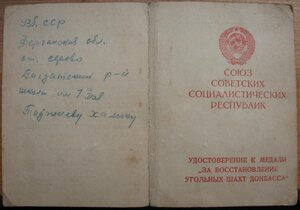 Узб. ССР
Ферганская обл.
ст. Серово
Багдатский р-й
школа им 1 Мая
Хамиму
СОЮЗ
СОВЕТСКИХ
СОЦИАЛИСТИЧЕСКИХ
РЕСПУБЛИК
УДОСТОВЕРЕНИЕ К МЕДАЛИ
„ЗА ВОССТАНОВЛЕНИЕ
УГОЛЬНЫХ ШАХТ ДОНБАССА"